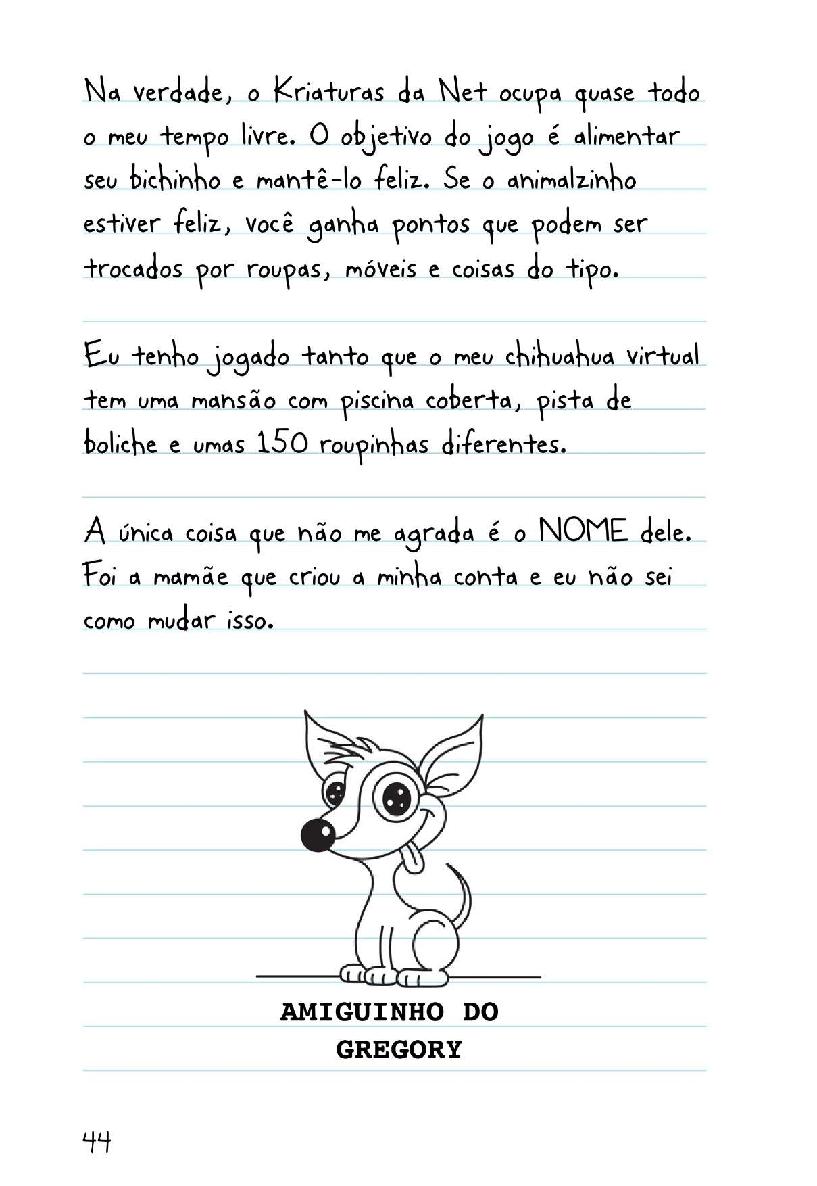 Na verdade, o Kriaturas da Net ocupa quase todo
o meu tempo livre. O objetivo do jogo é alimentar
seu bichinho e mantê-lo feliz. Se o animalzinho
estiver feliz, você ganha pontos que podem ser
trocados por roupas, móveis e coisas do tipo.
Eu tenho jogado tanto que o meu chihuahua virtual
tem uma mansão com piscina coberta, pista de
boliche e umas 150 roupinhas diferentes.
A única coisa que não me agrada é o NOME dele.
Foi a mamãe que criou a minha conta e eu não sei
como mudar isso.
AMIGUINHO DO
GREGORY
44